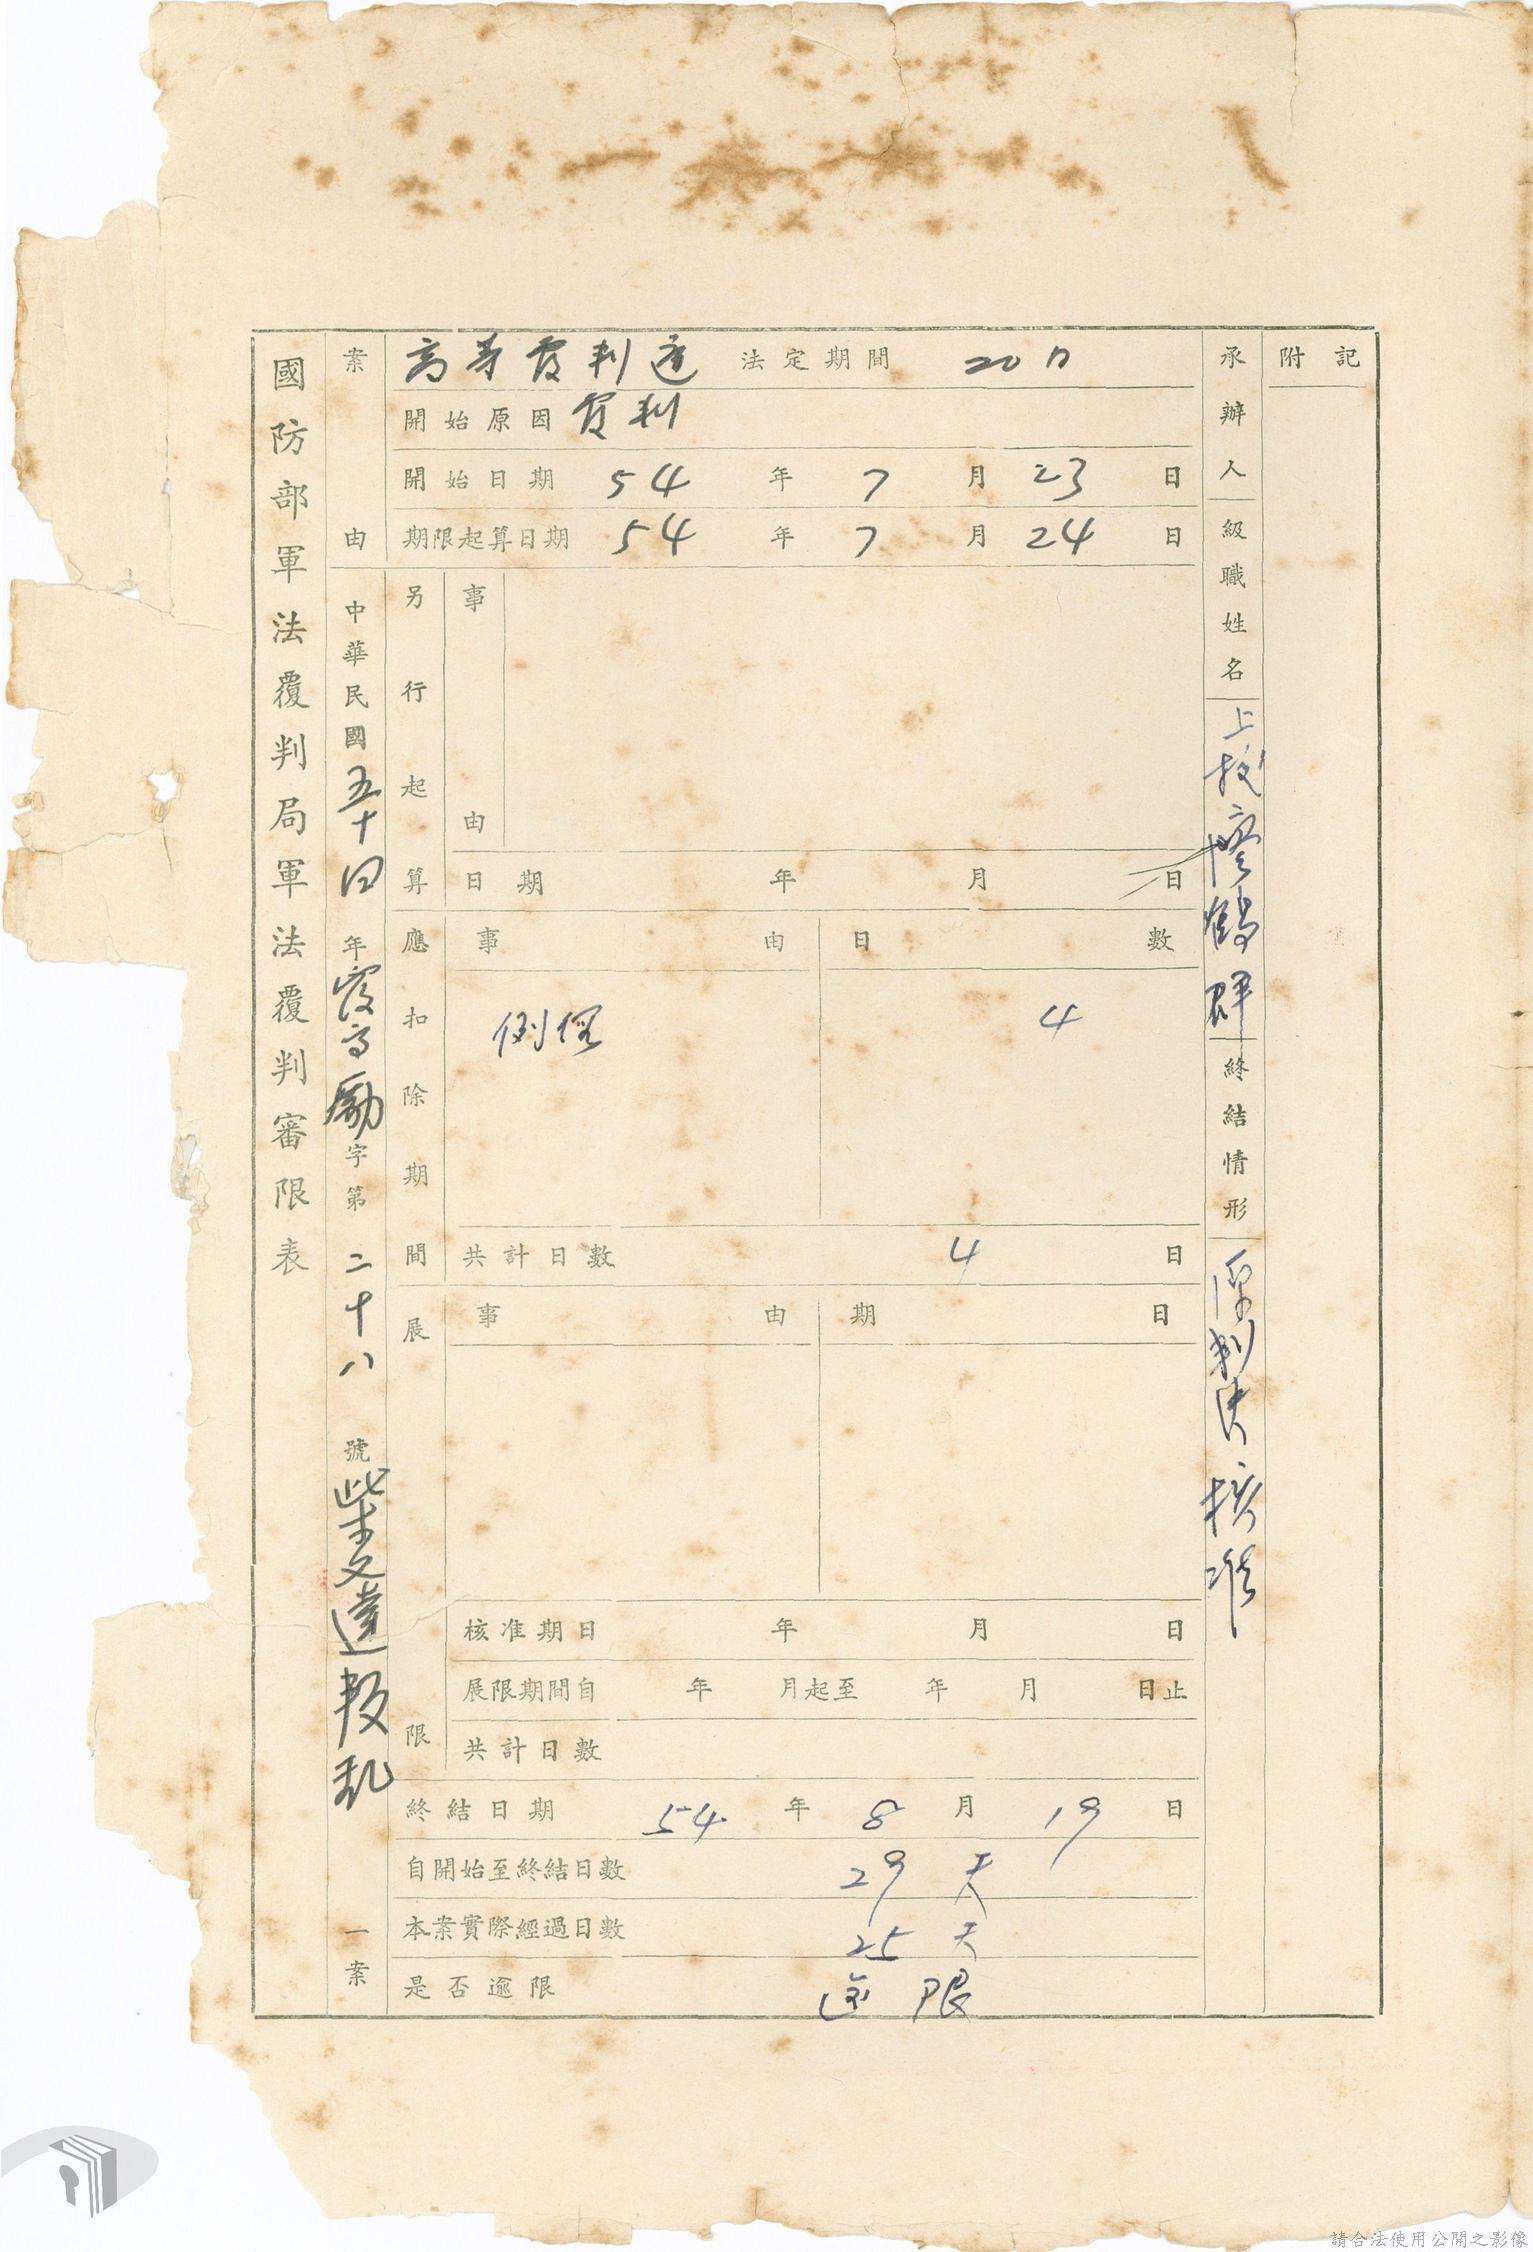 國防部軍法覆判局軍法覆判審限表
案由
中華民國五十四年覆高勵字第二十八號柴文達叛乱一案
高等覆判庭 法定期間 20日
開始原因 覆判
開始日期 54年7月23日
期限起算日期 54年7月24日
另行起算
事由
日期 年 月 日
應扣除期間
事由 日數
例假 4
共計日數 4 日
展限
事由 期日
核准期日 年 月 日
展限期間自 年 月起至 年 月 日止
共計日數
終結日期 54年8月19日
自開始至終結日數 29天
本案實際經過日數 25天
是否逾限 逾限
承辦人級職姓名 上校 鶴群
終結情形 原判決核准
附記
請合法使用公開之影像